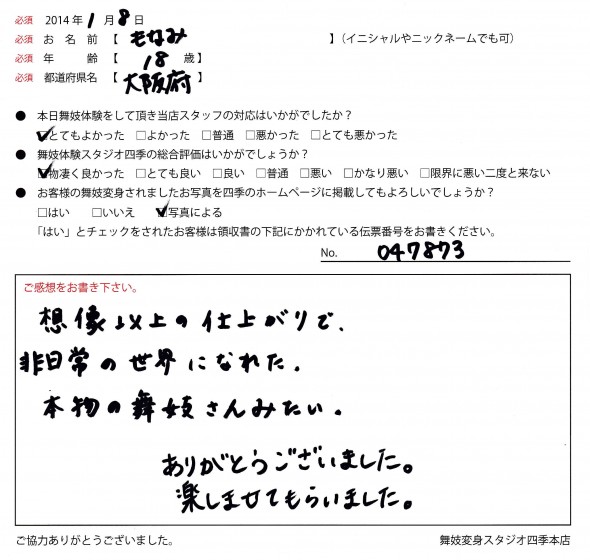 必須 2014年1月8日
必須 お名前【 もなみ 】(イニシャルやニックネームでも可)
必須 年齢【 18 歳】
必須 都道府県名【 大阪府 】
● 本日舞妓体験をして頂き当店スタッフの対応はいかがでしたか?
☑とてもよかった □よかった □普通 □悪かった □とても悪かった
● 舞妓体験スタジオ四季の総合評価はいかがでしょうか?
☑物凄く良かった □とても良い □良い □普通 □悪い □かなり悪い □限界に悪い二度と来ない
● お客様の舞妓変身されましたお写真を四季のホームページに掲載してもよろしいでしょうか?
□はい □いいえ ☑写真による
「はい」とチェックをされたお客様は領収書の下記にかかれている伝票番号をお書きください。
No. 047873
ご感想をお書き下さい。
想像以上の仕上がりで、
非日常の世界になれた。
本物の舞妓さんみたい。
ありがとうございました。
楽しませてもらいました。
ご協力ありがとうございました。 舞妓変身スタジオ四季本店